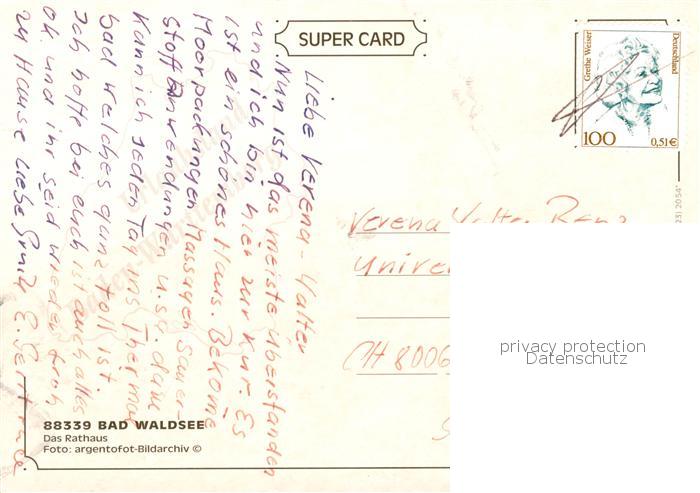 SUPER CARD
Grethe Weiser
Deutschland
100
0,51€
Liebe Verena - Walter
Nun ist das meiste überstanden
und ich bin hier zur Kur. Es
ist ein schönes Haus. Bekome
Moorpackungen Massagen Sauer-
stoffanwendungen u.s.w. dann
Kann ich jeden Tag ins Thermal
bad welches ganz toll ist.
Ich hoffe bei euch ist auch alles
ok. und ihr seid wieder froh
zu Hause Liebe Grüße E.
Verena Walter
Univer
CH 8006
88339 BAD WALDSEE
Das Rathaus
Foto: argentofot-Bildarchiv ©
privacy protection
Datenschutz